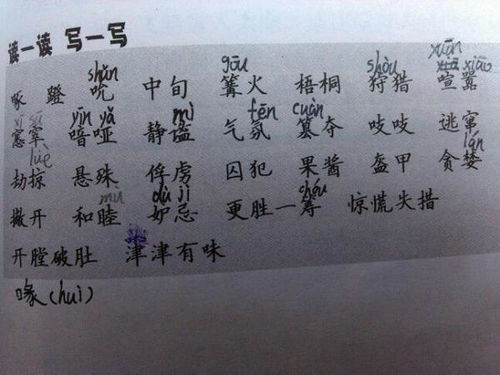 读一读 写一写
shǔn gōu shòu xuān xiāo
啄 蹬 吮 中旬 篝火 梧桐 狩猎 喧嚣
yīn yǎ mì fēn cuàn
窸窣 喑哑 静谧 气氛 篡夺 吱吱 逃窜
lüè lán
劫掠 悬殊 俘虏 囚犯 果酱 盔甲 贪婪
mù dù jì chóu
撇开 和睦 妒忌 更胜一筹 惊慌失措
开膛破肚 津津有味
喙(huì)